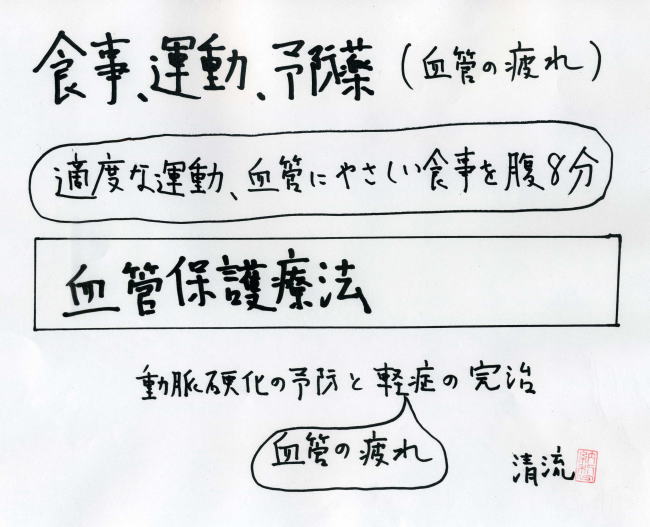 食事、運動、予防薬（血管の疲れ）
適度な運動、血管にやさしい食事を腹8分
血管保護療法
動脈硬化の予防と軽症の完治
血管の疲れ
清流